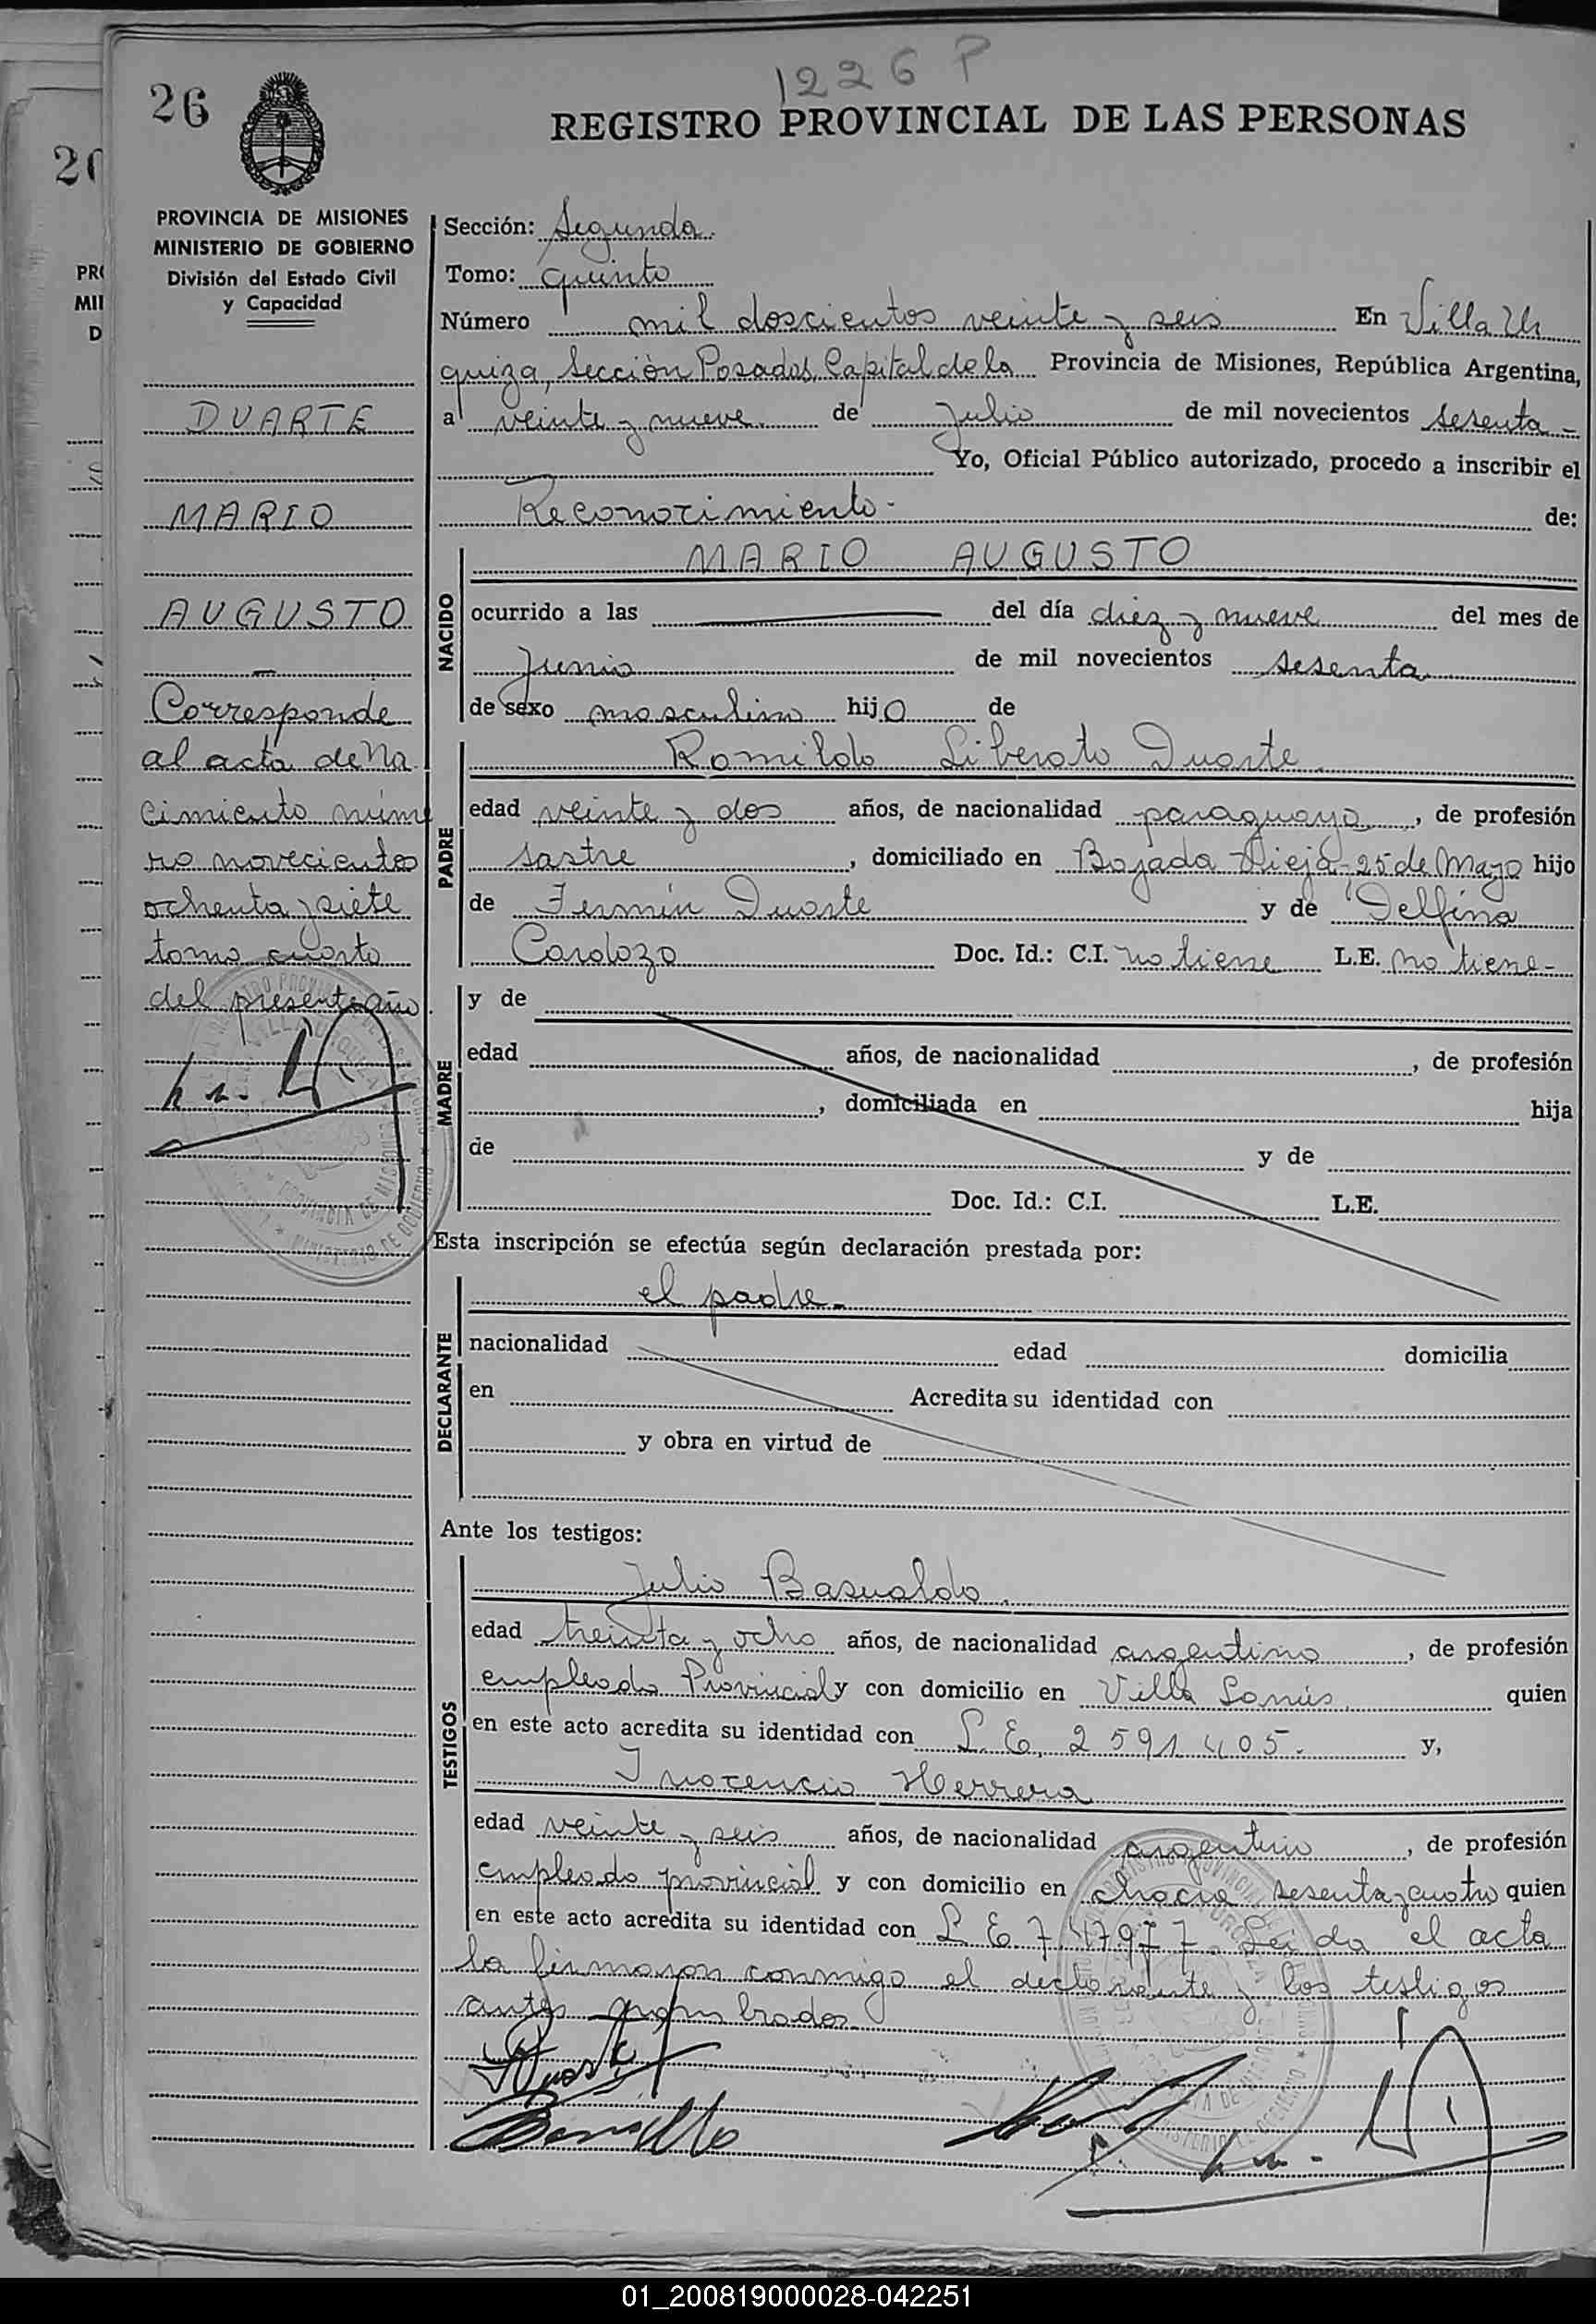 1226 P
26
REGISTRO PROVINCIAL DE LAS PERSONAS
PROVINCIA DE MISIONES
MINISTERIO DE GOBIERNO
División del Estado Civil
y Capacidad
DUARTE
MARIO
AUGUSTO
Corresponde
al acta de Na
cimiento núme
ro novecientos
ochenta y siete
tomo cuarto
del presente año.
Sección: Segunda.
Tomo: quinto
Número mil doscientos veinte y seis En Villa Ur
quiza, Sección Posadas, Capital de la Provincia de Misiones, República Argentina,
a veinte y nueve de Julio de mil novecientos sesenta -
Yo, Oficial Público autorizado, procedo a inscribir el
Reconocimiento - de:
MARIO AUGUSTO
NACIDO
ocurrido a las del día diez y nueve del mes de
Junio de mil novecientos sesenta
de sexo masculino hijo de
Romildo Liberato Duarte
PADRE
edad veinte y dos años, de nacionalidad paraguaya, de profesión
sastre, domiciliado en Bajada Vieja, 25 de Mayo hijo
de Fermín Duarte y de Delfina
Cardozo Doc. Id.: C.I. no tiene L.E. no tiene -
MADRE
y de
edad años, de nacionalidad , de profesión
, domiciliada en hija
de y de
Doc. Id.: C.I. L.E.
Esta inscripción se efectúa según declaración prestada por:
el padre -
DECLARANTE
nacionalidad edad domicilia
en Acredita su identidad con
y obra en virtud de
Ante los testigos:
TESTIGOS
Julio Basualdo
edad treinta y ocho años, de nacionalidad argentino, de profesión
empleado Provincial y con domicilio en Villa Lanús, quien
en este acto acredita su identidad con L. E. 2591405. y,
Inocencio Herrera
edad veinte y seis años, de nacionalidad argentino, de profesión
empleado provincial y con domicilio en chacra sesenta y cuatro quien
en este acto acredita su identidad con L E. Leída el acta
la firmaron conmigo el declarante y los testigos
antes nombrados.
01_200819000028-042251